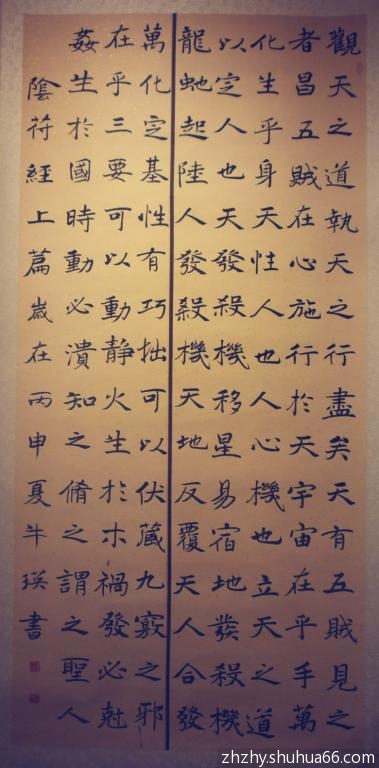 觀天之道執天之行盡矣天有五賊見之
者昌五賊在心施行於天宇宙在乎手萬
化生乎身天性人也人心機也立天之道
以定人也天發殺機移星易宿地發殺機
龍虵起陸人發殺機天地反覆天人合發
萬化定基性有巧拙可以伏藏九竅之邪
在乎三要可以動靜火生於木禍發必尅
姦生於國時動必潰知之脩之謂之聖人
陰符經上篇歲在丙申夏牛瑛書
zhzhy.shuhua66.com